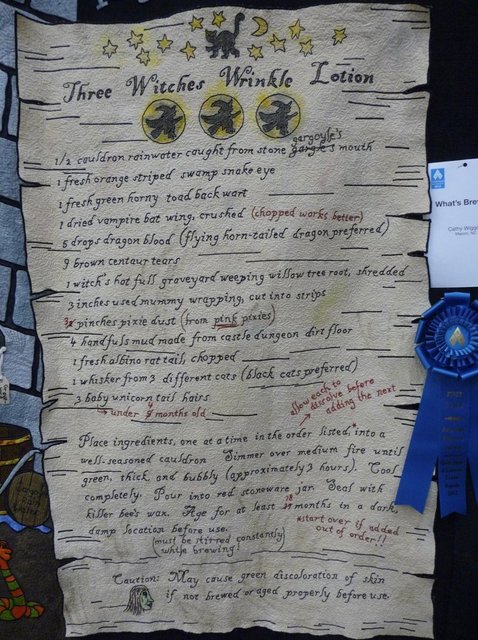 Three Witches Wrinkle Lotion
gargoyle's
1/2 cauldron rainwater caught from stone gargle's mouth
1 fresh orange striped swamp snake eye
1 fresh green horny toad back wart
1 dried vampire bat wing, crushed (chopped works better)
5 drops dragon blood (flying horn-tailed dragon preferred)
9 brown centaur tears
1 witch's hat full graveyard weeping willow tree root, shredded
3 inches used mummy wrapping, cut into strips
3 pinches pixie dust (from pink pixies)
4 handfuls mud made from castle dungeon dirt floor
1 fresh albino rat tail, chopped
1 whisker from 3 different cats (black cats preferred)
3 baby unicorn tail hairs
→ under 4 months old
allow each to
dissolve before
adding the next
Place ingredients, one at a time in the order listed,* into a
well-seasoned cauldron. Simmer over medium fire until
green, thick, and bubbly (approximately 3 hours). Cool
completely. Pour into red stoneware jar. Seal with
killer bee's wax. Age for at least 18 months in a dark,
damp location before use.
*start over if added
out of order!!
(must be stirred constantly
while brewing!)
Caution: May cause green discoloration of skin
if not brewed or aged properly before use.
What's Brew
Cathy Wigg